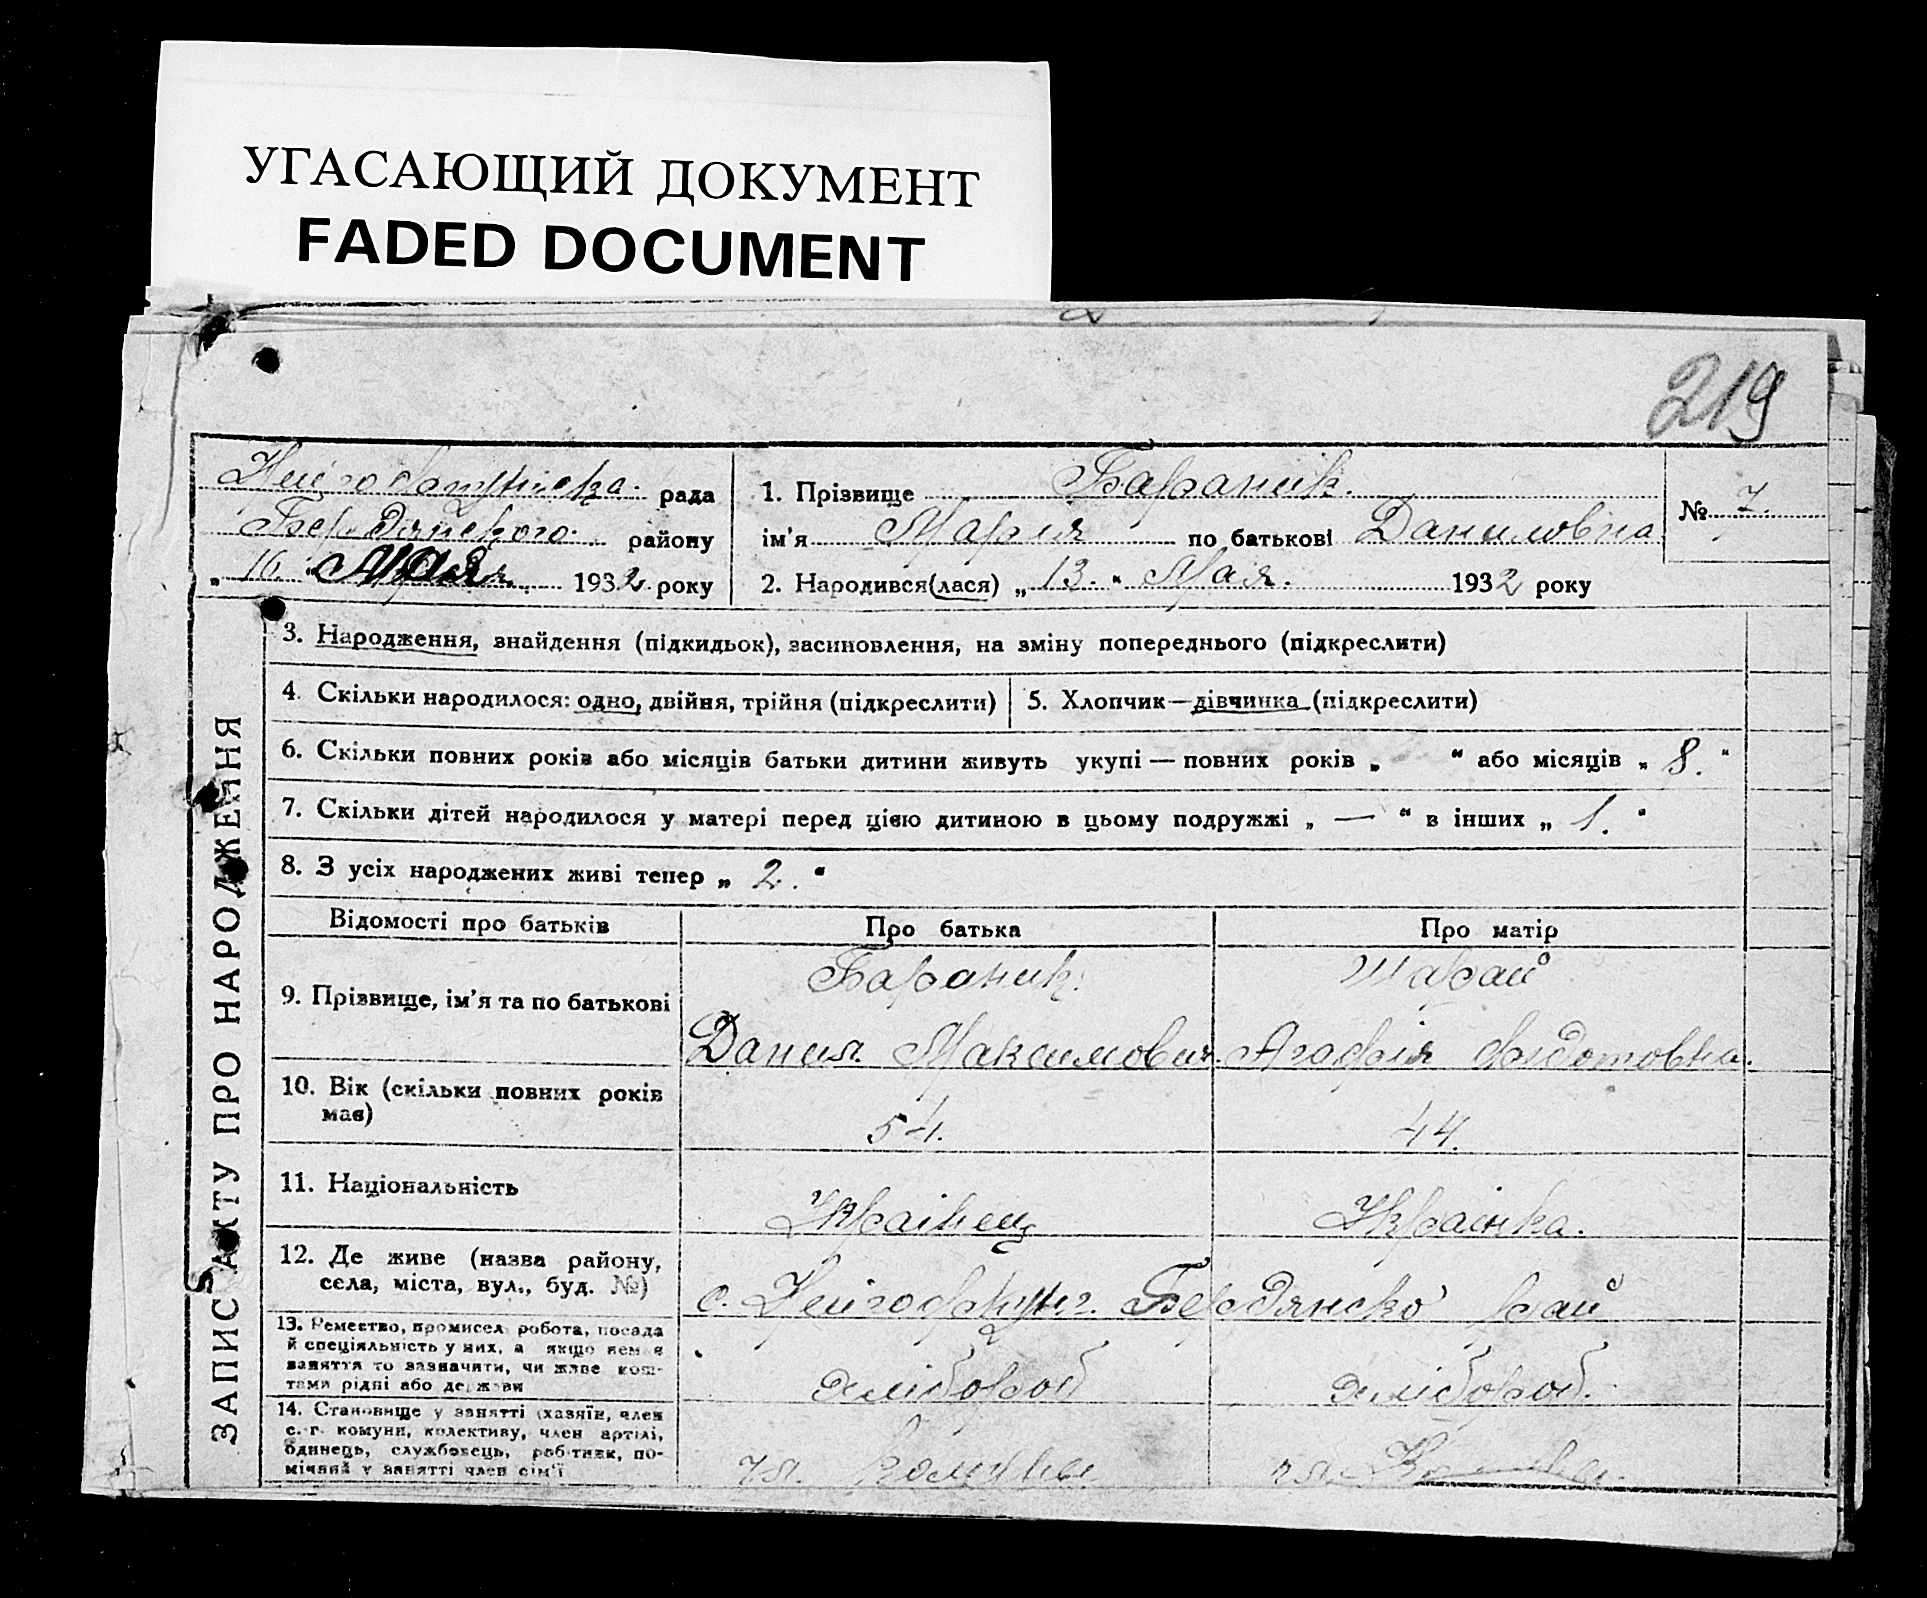 УГАСАЮЩИЙ ДОКУМЕНТ
FADED DOCUMENT
219
рада
Бердянского району
„ 16 " Мая 1932 року
1. Прізвище Бараник.
ім'я Марія по батькові Даниловна
№ 7.
2. Народився(лася) „ 13. " Мая. 1932 року
ЗАПИС АКТУ ПРО НАРОДЖЕННЯ
3. Народження, знайдення (підкидьок), засиновлення, на зміну попереднього (підкреслити)
4. Скільки народилося: одно, двійня, трійня (підкреслити)
5. Хлопчик—дівчинка (підкреслити)
6. Скільки повних років або місяців батьки дитини живуть укупі — повних років „ " або місяців „ 8. "
7. Скільки дітей народилося у матері перед цією дитиною в цьому подружжі „ — " в інших „ 1. "
8. З усіх народжених живі тепер „ 2. "
Відомості про батьків
Про батька
Про матір
9. Прізвище, ім'я та по батькові
Бараник
Данил Максимович
Шарай
Агафія Федотовна.
10. Вік (скільки повних років
має)
54.
44.
11. Національність
Українец
Українка.
12. Де живе (назва району,
села, міста, вул., буд. №)
с. Бердянско рай
13. Ремество, промисел робота, посада
й спеціяльність у них, а якщо немає
заняття то зазначити, чи живе кош-
тами рідні або держави
хлібороб
хлібороб.
14. Становище у занятті (хазяїн, член
с.-г. комуни, колективу, член артілі,
одинець, службовець, робітник, по-
мічний у занятті член сім'ї
чл.
чл.